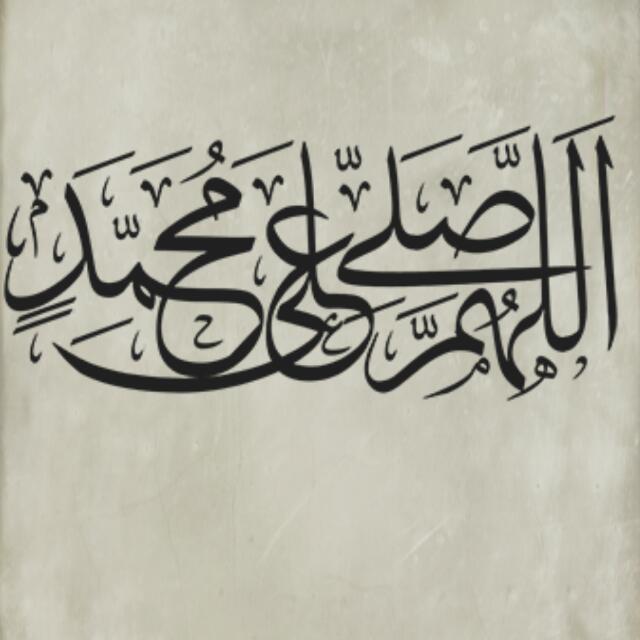 اَللّهُمَّ صَلِّ عَلى مُحَمَّدٍ